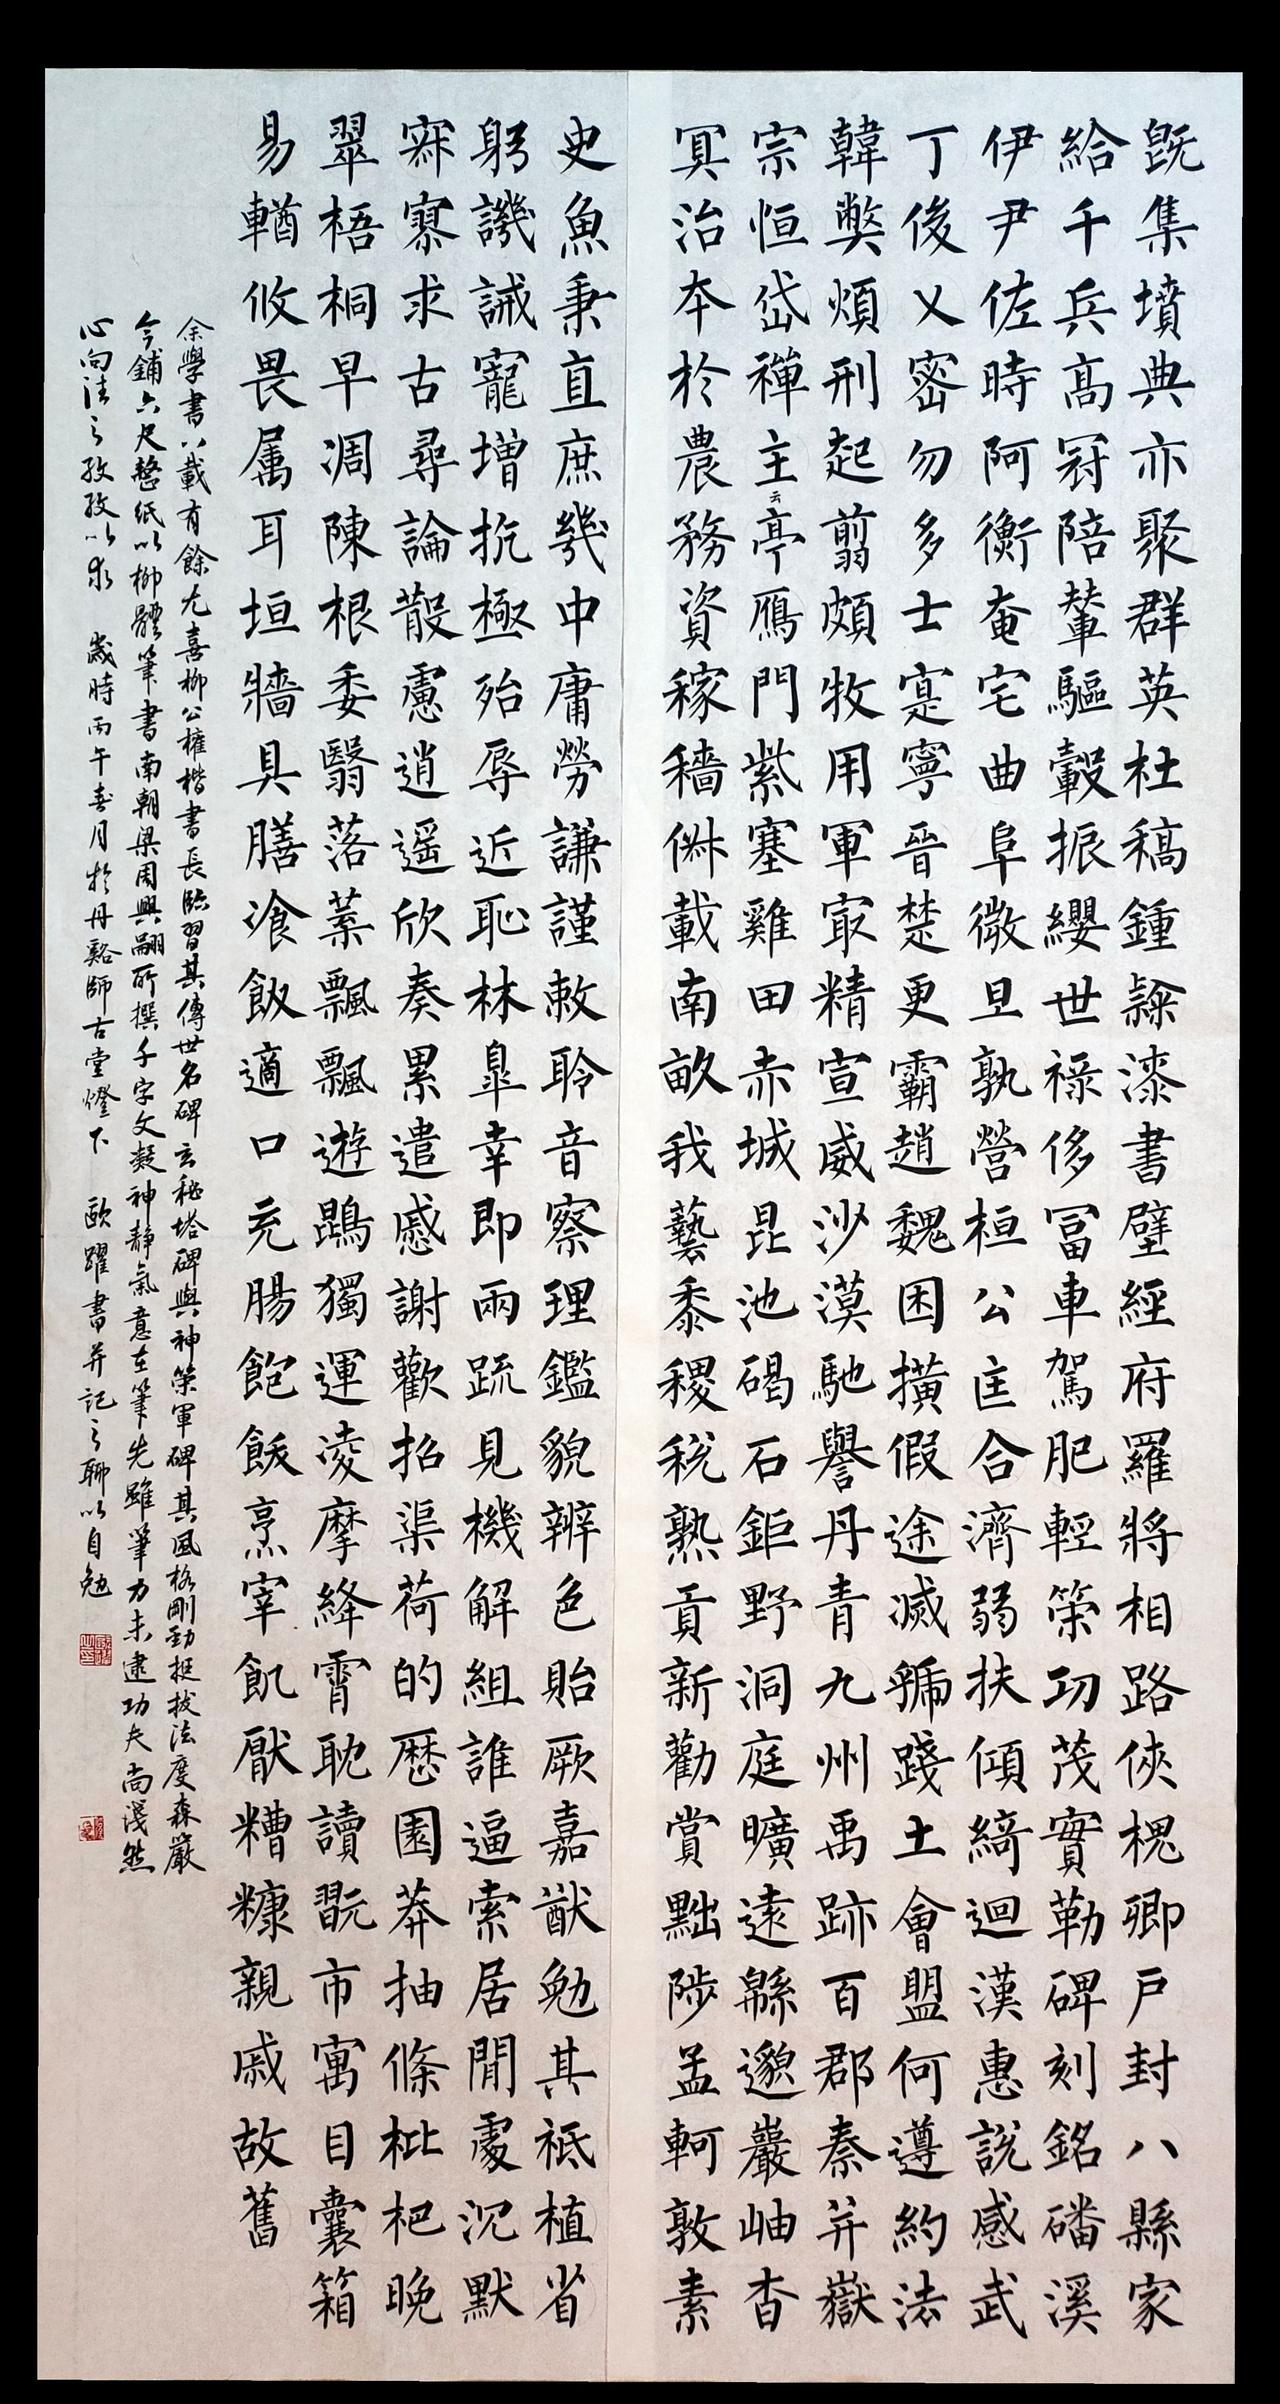 既集墳典亦聚群英杜稿鍾隸漆書壁經府羅將相路俠槐卿戶封八縣家
給千兵高冠陪輦驅轂振纓世祿侈冨車駕肥輕策功茂實勒碑刻銘磻溪
伊尹佐時阿衡奄宅曲阜微旦孰營桓公匡合濟弱扶傾綺迴漢惠說感武
丁俊乂密勿多士寔寧晉楚更霸趙魏困橫假途滅虢踐土會盟何遵約法
韓弊煩刑起翦頗牧用軍最精宣威沙漠馳譽丹青九州禹跡百郡秦并嶽
宗恒岱禪主云亭鴈門紫塞雞田赤城昆池碣石鉅野洞庭曠遠緜邈巖岫杳
冥治本於農務資稼穡俶載南畝我藝黍稷稅熟貢新勸賞黜陟孟軻敦素
史魚秉直庶幾中庸勞謙謹敕聆音察理鑑貌辨色貽厥嘉猷勉其祗植省
躬譏誡寵增抗極殆辱近恥林皋幸即兩疏見機解組誰逼索居閒處沉默
寂寥求古尋論散慮逍遙欣奏累遣慼謝歡招渠荷的歷園莽抽條枇杷晚
翠梧桐早凋陳根委翳落葉飄飄遊鵾獨運凌摩絳霄耽讀翫市寓目囊箱
易輶攸畏屬耳垣牆具膳飡飯適口充腸飽飫烹宰飢厭糟糠親戚故舊
余學書八載有餘尤喜柳公權楷書長臨習其傳世名碑玄秘塔碑與神策軍碑其風格剛勁挺拔法度森嚴
今鋪六尺整紙以柳體筆書南朝梁周興嗣所撰千字文凝神靜氣意在筆先雖筆力未逮功夫尚淺然
心向往之孜孜以求 歲時丙午春月於丹谿師古堂燈下 歐躍書并記之聊以自勉